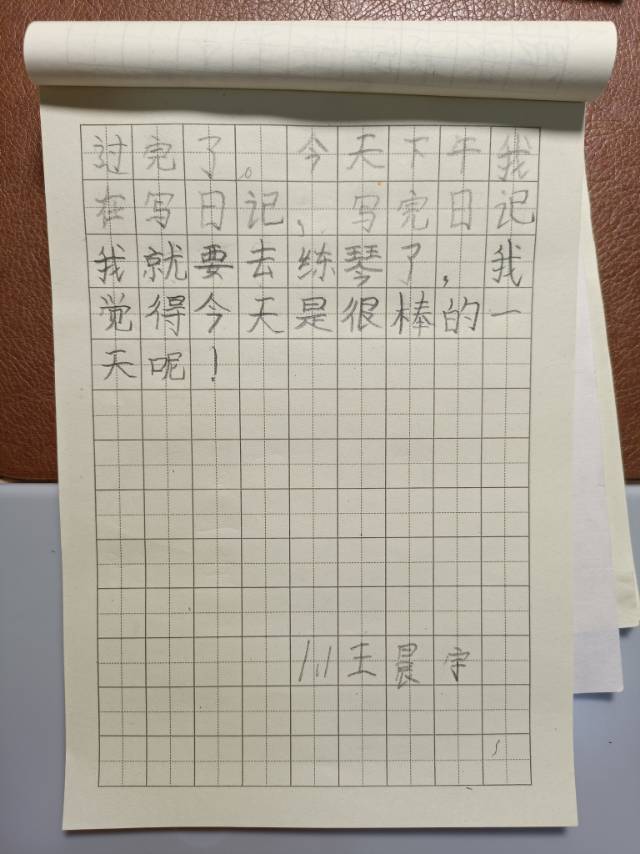 过完了。今天下午我
在写日记，写完日记
我就要去练琴了，我
觉得今天是很棒的一
天呢！
1.1王晨宇